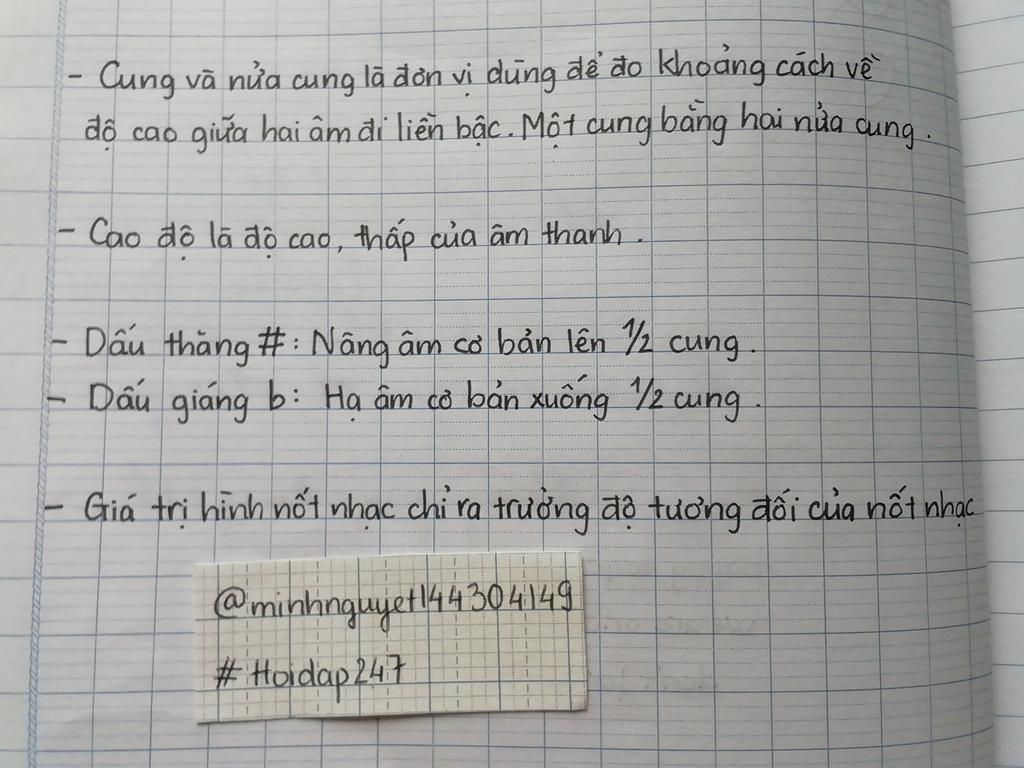 - Cung và nửa cung là đơn vị dùng để đo khoảng cách về
độ cao giữa hai âm đi liền bậc. Một cung bằng hai nửa cung.
- Cao độ là độ cao, thấp của âm thanh.
- Dấu thăng #: Nâng âm cơ bản lên 1/2 cung.
- Dấu giáng b: Hạ âm cơ bản xuống 1/2 cung.
- Giá trị hình nốt nhạc chỉ ra trường độ tương đối của nốt nhạc
@minhnguyet144304149
# Hoidap247